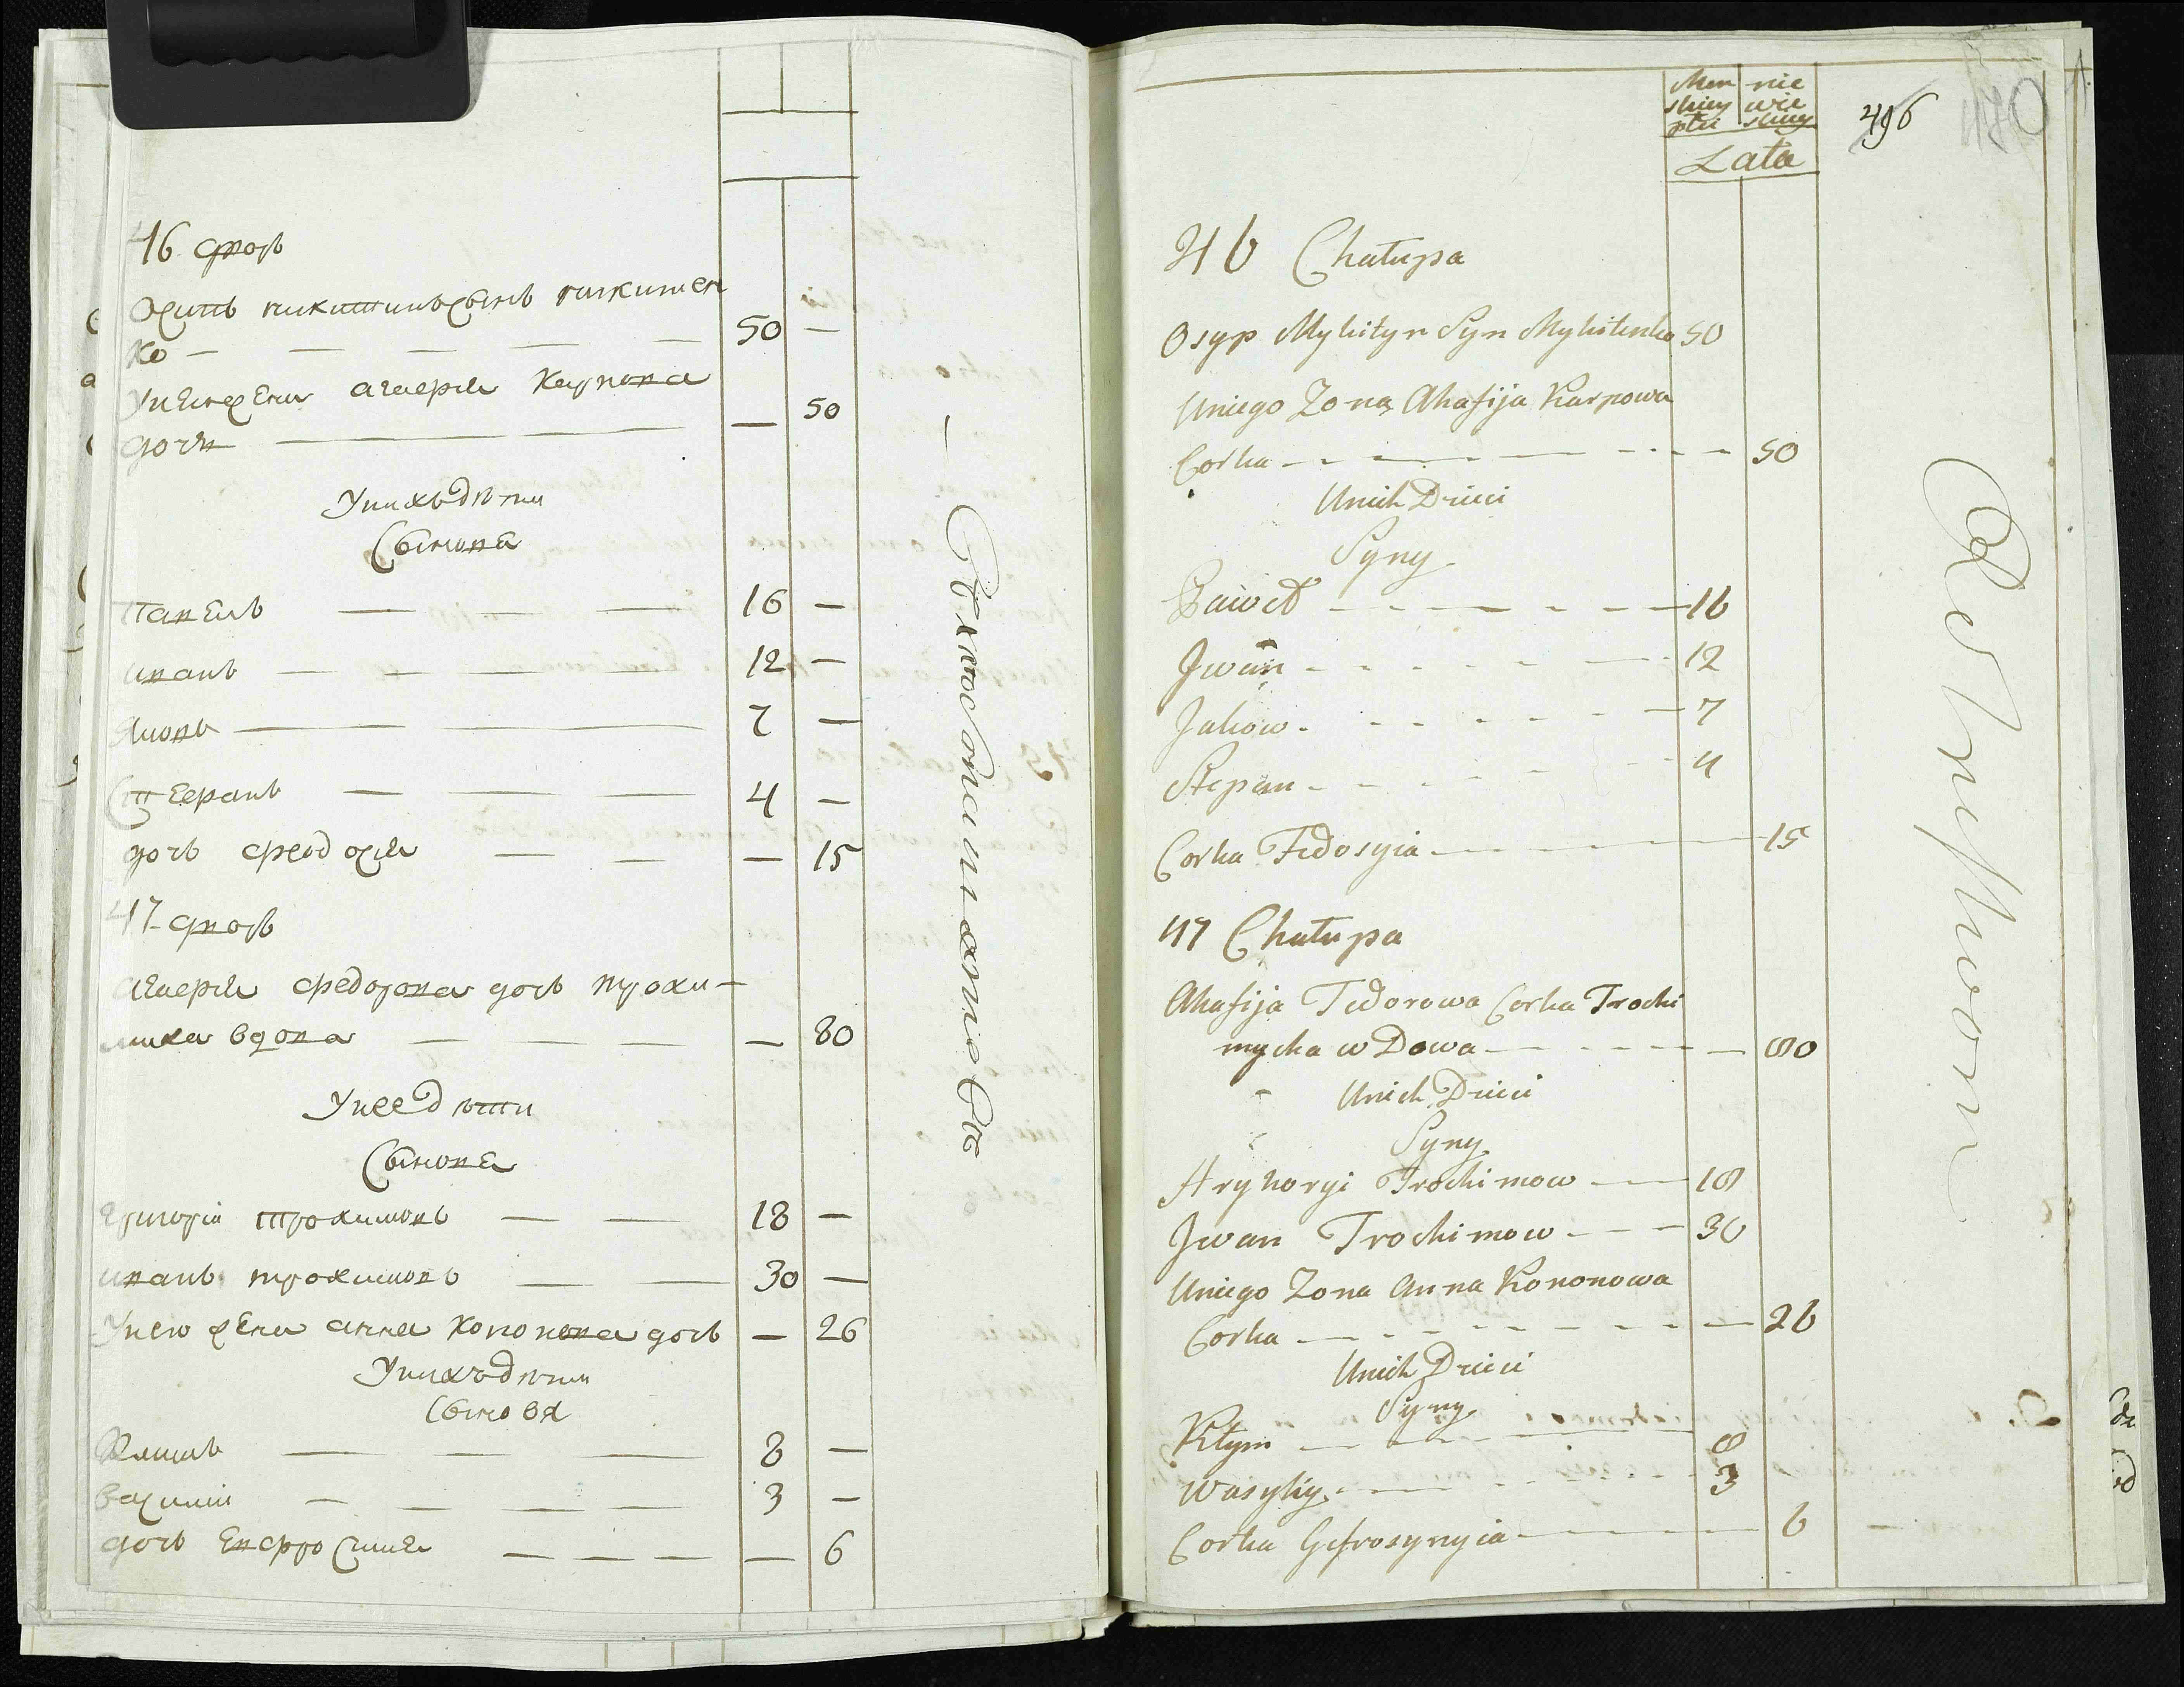 46 двор
Осипъ никитинъ сынъ никитен
ко — — — — — 50 —
У него жена агафия карпова
дочь — — — — 50
У нихъ дѣти
Сынова
Павелъ — — — 16 —
иванъ — — — — 12 —
Яковъ — — — 7 —
Степанъ — — — 4 —
дочь феодосия — — — 15
47 двор
агафия федорова дочь трохи-
миха вдова — — — — 80
У нее дѣти
Сынова
григорій трохимовъ — — 18 —
иванъ трохимовъ — — 30 —
У него жена анна кононова дочь — 26
У нихъ дѣти
Сыновя
Климъ — — — 8 —
василий — — — — 3 —
дочь Евфросиния — — — — 6
Men nie
skiey wie
płci skiey
Lata
496
46 Chatupa
Osyp Mykityn Syn Mykitenko 50
Uniego Zona Ahafija Karpowa
Corka — — — 50
Unich Dzieci
Syny
Paweł — — — 16
Jwan — — — 12
Jakow — — — 7
Stepan — — — 4
Corka Fedosyia — — — 15
47 Chatupa
Ahafija Fedorowa Corka Trochi
mycha w Dowa — — — 80
Unich Dzieci
Syny
Hryhoryi Trochimow — — 18
Jwan Trochimow — — 30
Uniego Zona Anna Kononowa
Corka — — — 26
Unich Dzieci
Syny
Kłym — — — 8
Wasyliy — — — 3
Corka Gefrosynyia — — — 6